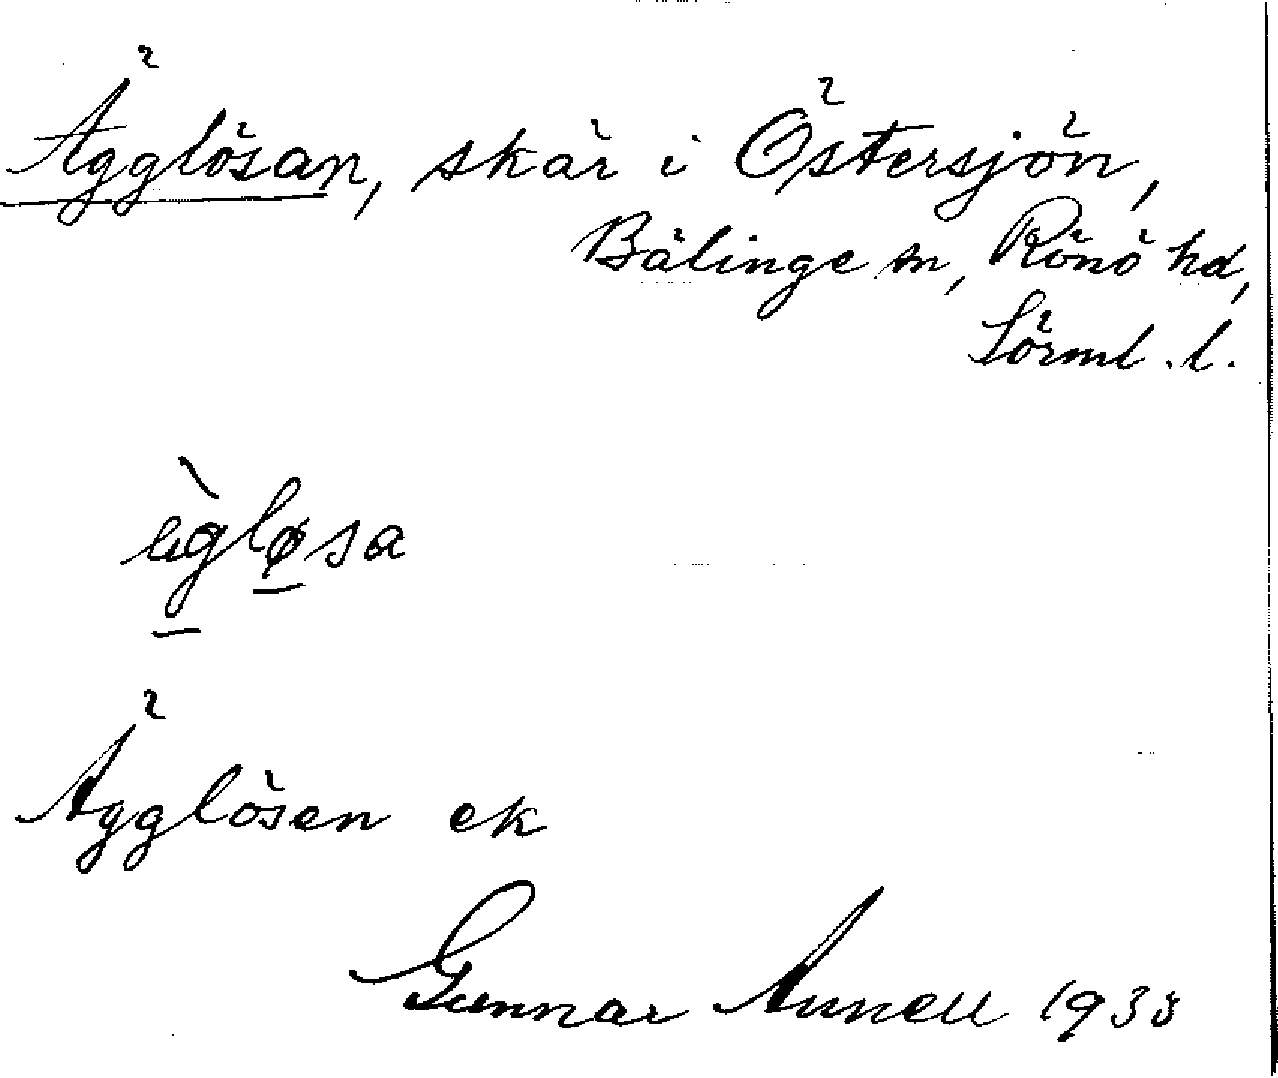 Ägglösan, skär i Östersjön,
Bälinge sn, Rönö hd,
Sörml. l.
ègløsa
Ägglösen ek
Gunnar Annell 1933